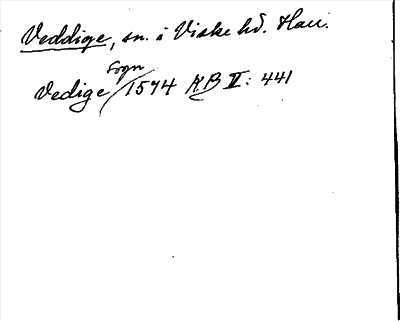 Veddige, sn. i Viske hd. Hall.
Vedige sogn 1574 KB V: 441